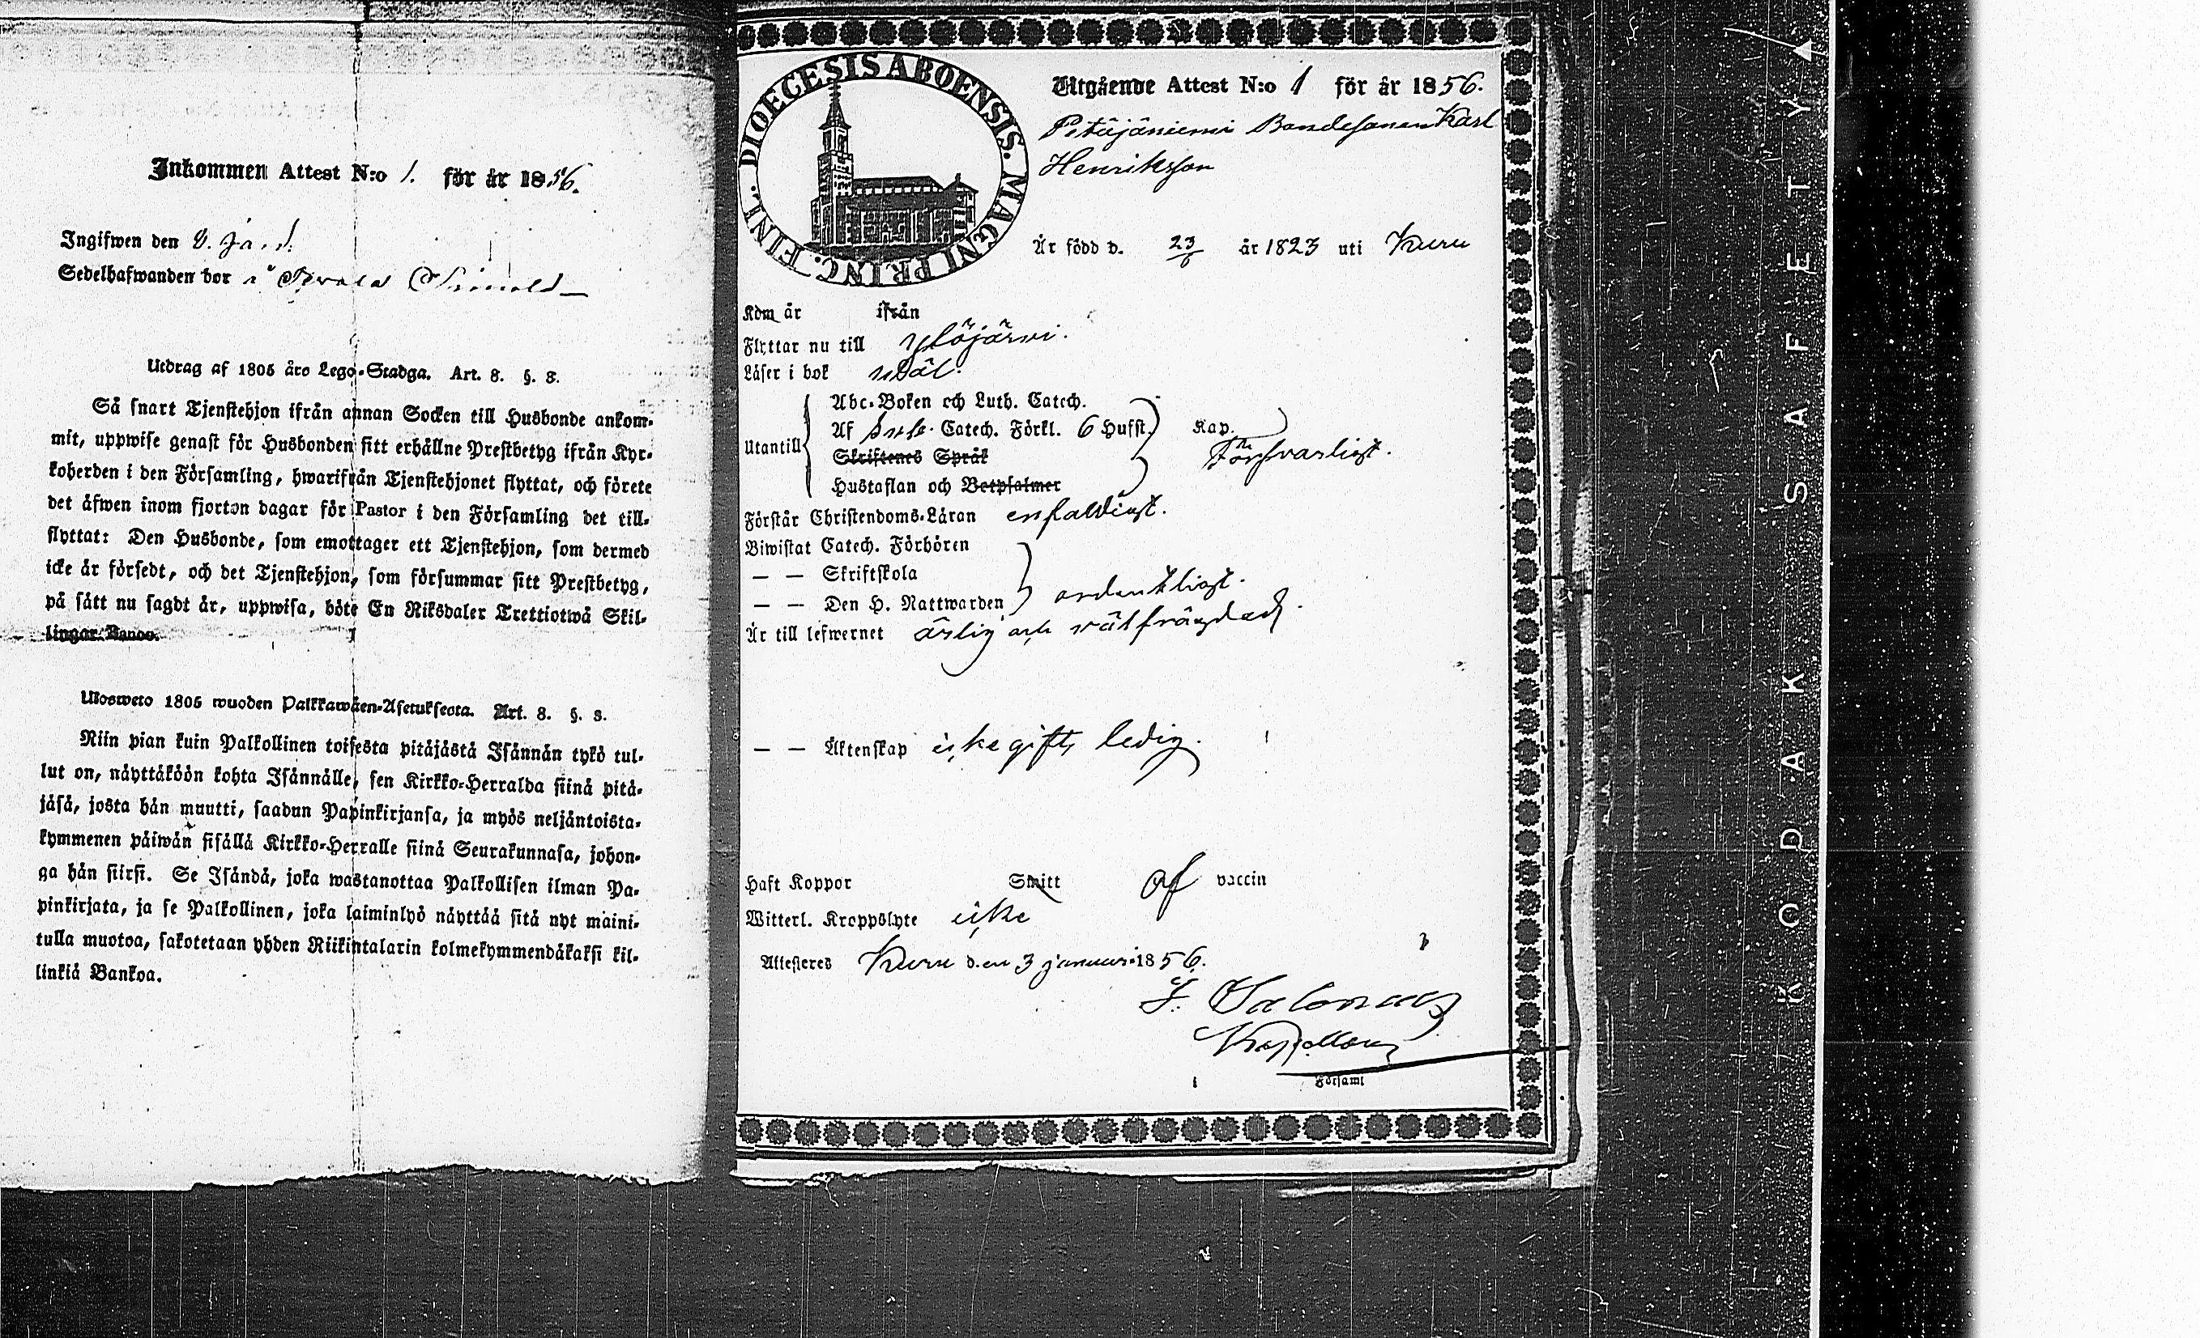 Inkommen Attest N:o 1. för år 1856.
Ingifwen den 8. Jan.
Sedelhafwanden bor å
Utdrag af 1805 års Lego-Stadga. Art. 8. §. 8.
Så snart Tjenstehjon ifrån annan Socken till Husbonde ankom-
mit, uppwise genast för Husbonden sitt erhållne Prestbetyg ifrån Kyr-
koherden i den Församling, hwarifrån Tjenstehjonet flyttat, och förete
det äfwen inom fjorton dagar för Pastor i den Församling det till-
flyttat: Den Husbonde, som emottager ett Tjenstehjon, som dermed
icke är försedt, och det Tjenstehjon, som försummar sitt Prestbetyg,
på sätt nu sagdt är, uppwisa, böte En Riksdaler Trettiotwå Skil-
lingar Banco.
Ulosweto 1805 wuoden Palkkawäen-Asetuksesta. Art. 8. §. 8.
Niin pian kuin Palkollinen toisesta pitäjästä Isännän tykö tul-
lut on, näyttäköön kohta Isännälle, sen Kirkko-Herralda siinä pitä-
jäsä, josta hän muutti, saadun Papinkirjansa, ja myös neljäntoista-
kymmenen päiwän sisällä Kirkko-Herralle siinä Seurakunnasa, johon-
ga hän siirsi. Se Isändä, joka wastanottaa Palkollisen ilman Pa-
pinkirjata, ja se Palkollinen, joka laiminlyö näyttää sitä nyt maini-
tulla muotoa, sakotetaan yhden Riikintalarin kolmekymmendäkaksi kil-
linkiä Bankoa.
DIOECESIS ABOENSIS. MAGNI PRINC. FINL.
Utgående Attest N:o 1 för år 1856.
Petäjäniemi Bondesonen Karl
Henriksson
Är född d. 23/6 år 1823 uti Kuru
Kom år ifrån
Flyttar nu till Ylöjärvi.
Läser i bok wäl.
Utantill
Abc-Boken och Luth. Catech.
Af Catech. Förkl. 6 Hufst. Kap.
Skriftenes Språk
Hustaflan och Betpsalmer
Försvarligt.
Förstår Christendoms-Läran enfaldigt.
Biwistat Catech. Förhören
— — Skriftskola
— — Den H. Nattwarden ordentligt.
Är till lefwernet ärlig och wälfrägdad.
— — Äktenskap icke gift, ledig.
Haft Koppor Smitt af vaccin
Witterl. Kroppslyte icke
Attesteras Kuru den 3 januari 1856.
Kapellan
i Församl
KODAK SAFETY